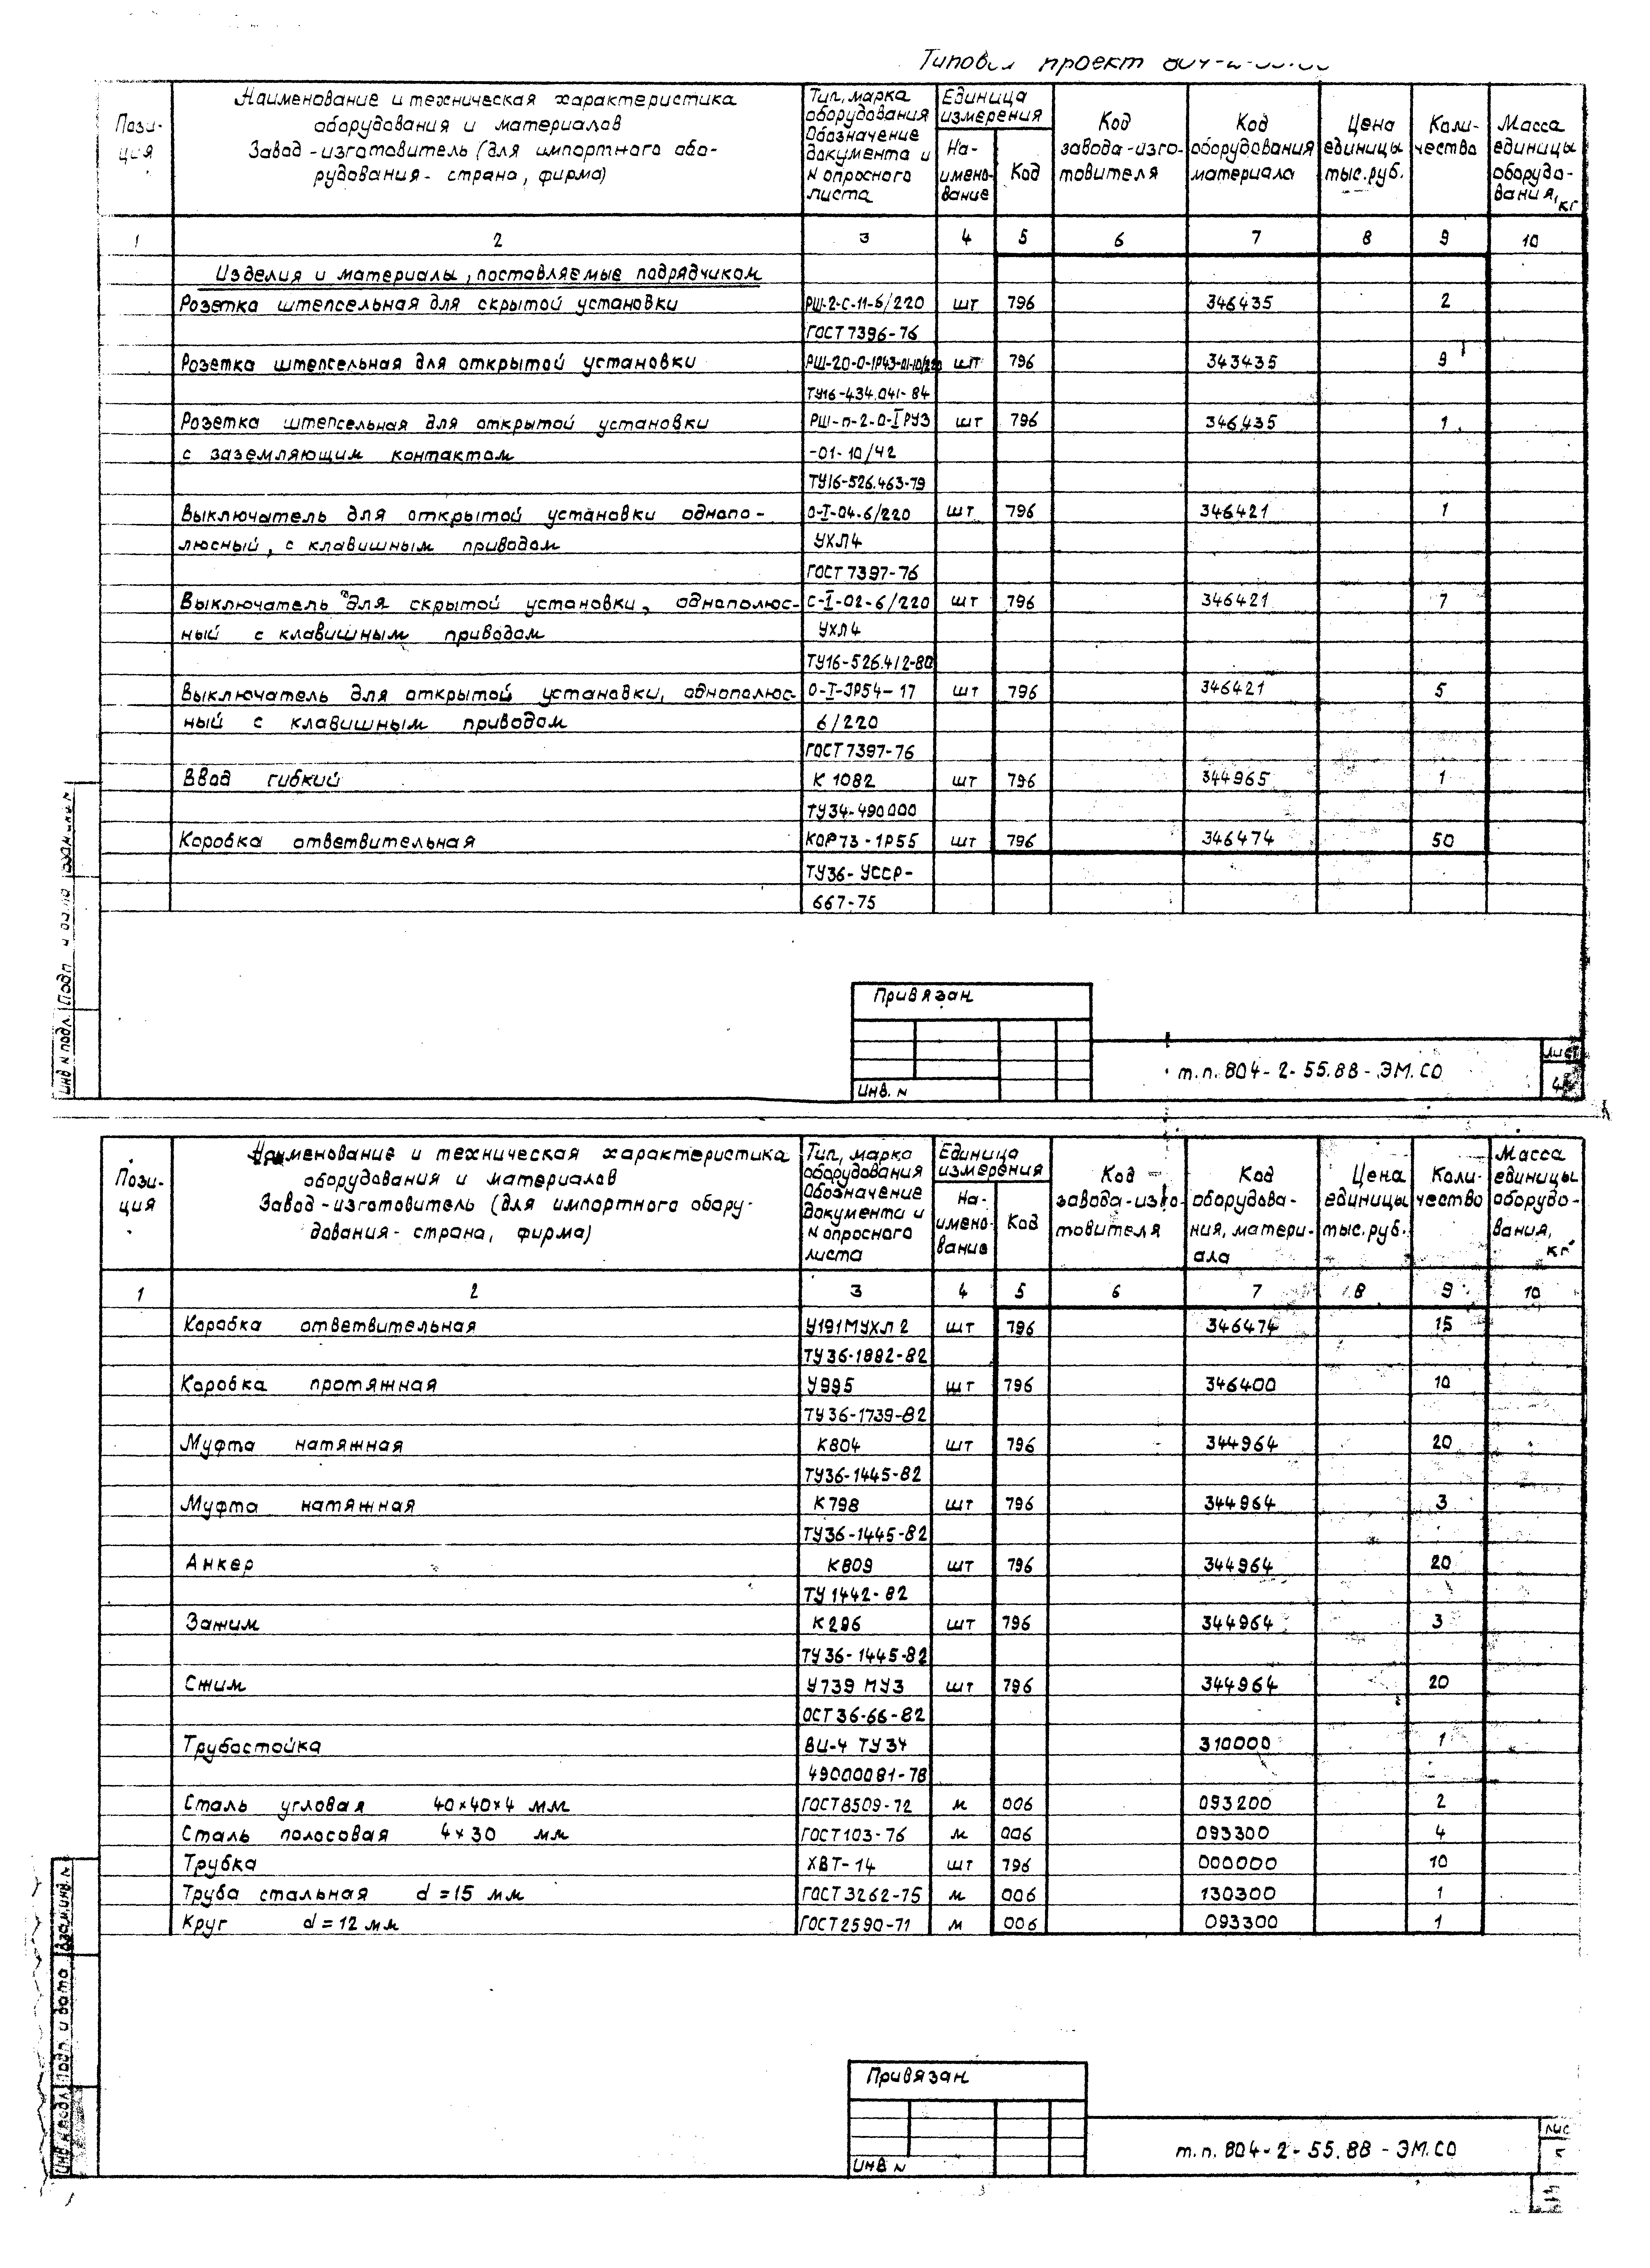 Типовой проект 804-2-55.88
Пози-
ция
Наименование и техническая характеристика
оборудования и материалов
Завод-изготовитель (для импортного обо-
рудования - страна, фирма)
Тип, марка
оборудования
Обозначение
документа и
N опросного
листа
Единица
измерения
На-
имено-
вание
Код
Код
завода-изго-
товителя
Код
оборудования
материала
Цена
единицы
тыс.руб.
Коли-
чество
Масса
единицы
оборудо-
вания, кг
1 2 3 4 5 6 7 8 9 10
Изделия и материалы, поставляемые подрядчиком
Розетка штепсельная для скрытой установки РШ-2-С-11-6/220 шт 796 346435 2
ГОСТ 7396-76
Розетка штепсельная для открытой установки РШ-20-0-IP43-01-10/220 шт 796 343435 9
ТУ16-434.041-84
Розетка штепсельная для открытой установки РШ-п-2-0-IРУ3 шт 796 346435 1
с заземляющим контактом -01-10/42
ТУ16-526.463-79
Выключатель для открытой установки однопо- 0-I-04-6/220 шт 796 346421 1
люсный, с клавишным приводом УХЛ4
ГОСТ 7397-76
Выключатель для скрытой установки, однополюс- С-I-02-6/220 шт 796 346421 7
ный с клавишным приводом УХЛ4
ТУ16-526.412-80
Выключатель для открытой установки, однополюс- 0-I-IP54-17 шт 796 346421 5
ный с клавишным приводом 6/220
ГОСТ 7397-76
Ввод гибкий К 1082 шт 796 344965 1
ТУ34-490000
Коробка ответвительная КОР73-1Р55 шт 796 346474 50
ТУ36-УССР-
667-75
Привязан
Инв. N
т.п. 804-2-55.88-ЭМ.СО
Лист
4
Инв N подл. Подп и дата Взам.инв.N
Пози-
ция
Наименование и техническая характеристика
оборудования и материалов
Завод-изготовитель (для импортного обору-
дования - страна, фирма)
Тип, марка
оборудования
Обозначение
документа и
N опросного
листа
Единица
измерения
На-
имено-
вание
Код
Код
завода-изго-
товителя
Код
оборудова-
ния, матери-
ала
Цена
единицы
тыс.руб.
Коли-
чество
Масса
единицы
оборудо-
вания,
кг
1 2 3 4 5 6 7 8 9 10
Коробка ответвительная У191МУХЛ2 шт 796 346474 15
ТУ36-1882-82
Коробка протяжная У995 шт 796 346400 10
ТУ36-1739-82
Муфта натяжная К804 шт 796 344964 20
ТУ36-1445-82
Муфта натяжная К798 шт 796 344964 3
ТУ36-1445-82
Анкер К809 шт 796 344964 20
ТУ 1442-82
Зажим К296 шт 796 344964 3
ТУ36-1445-82
Сжим У739 МУ3 шт 796 344964 20
ОСТ 36-66-82
Трубостойка ВЦ-4 ТУ34 310000 1
49000081-78
Сталь угловая 40×40×4 мм ГОСТ8509-72 м 006 093200 2
Сталь полосовая 4×30 мм ГОСТ103-76 м 006 093300 4
Трубка ХВТ-14 шт 796 000000 10
Труба стальная d=15 мм ГОСТ3262-75 м 006 130300 1
Круг d=12 мм ГОСТ2590-71 м 006 093300 1
Привязан
Инв N
т.п. 804-2-55.88-ЭМ.СО
Лис
5
Инв N подл Подп. и дата Взам.инв.N